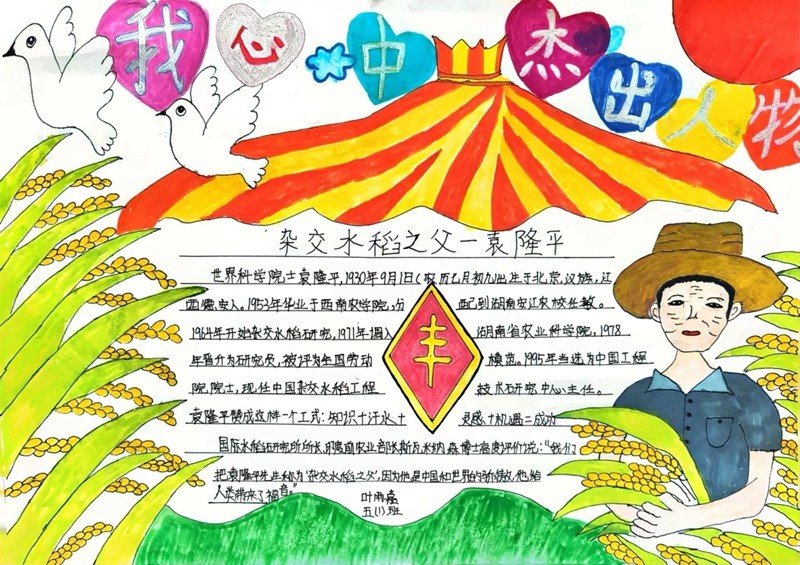 我心中杰出人物
杂交水稻之父一袁隆平
世界科学院士袁隆平,1930年9月1日(农历七月初九)出生于北京,汉族,江
西德安人。1953年毕业于西南农学院,分配到湖南安江农校任教。
1964年开始杂交水稻研究,1971年调入湖南省农业科学院,1978
年晋升为研究员,被评为全国劳动模范。1995年当选为中国工程
院院士,现任中国杂交水稻工程技术研究中心主任。
袁隆平赞成这样一个工式:知识+汗水+灵感+机遇=成功
国际水稻研究所所长,印度前农业部长斯瓦米纳森博士高度评价说:“我们
把袁隆平先生称为‘杂交水稻之父’,因为他是中国和世界的骄傲,他给
人类带来了福音。”
叶雨嘉
五(1)班
丰